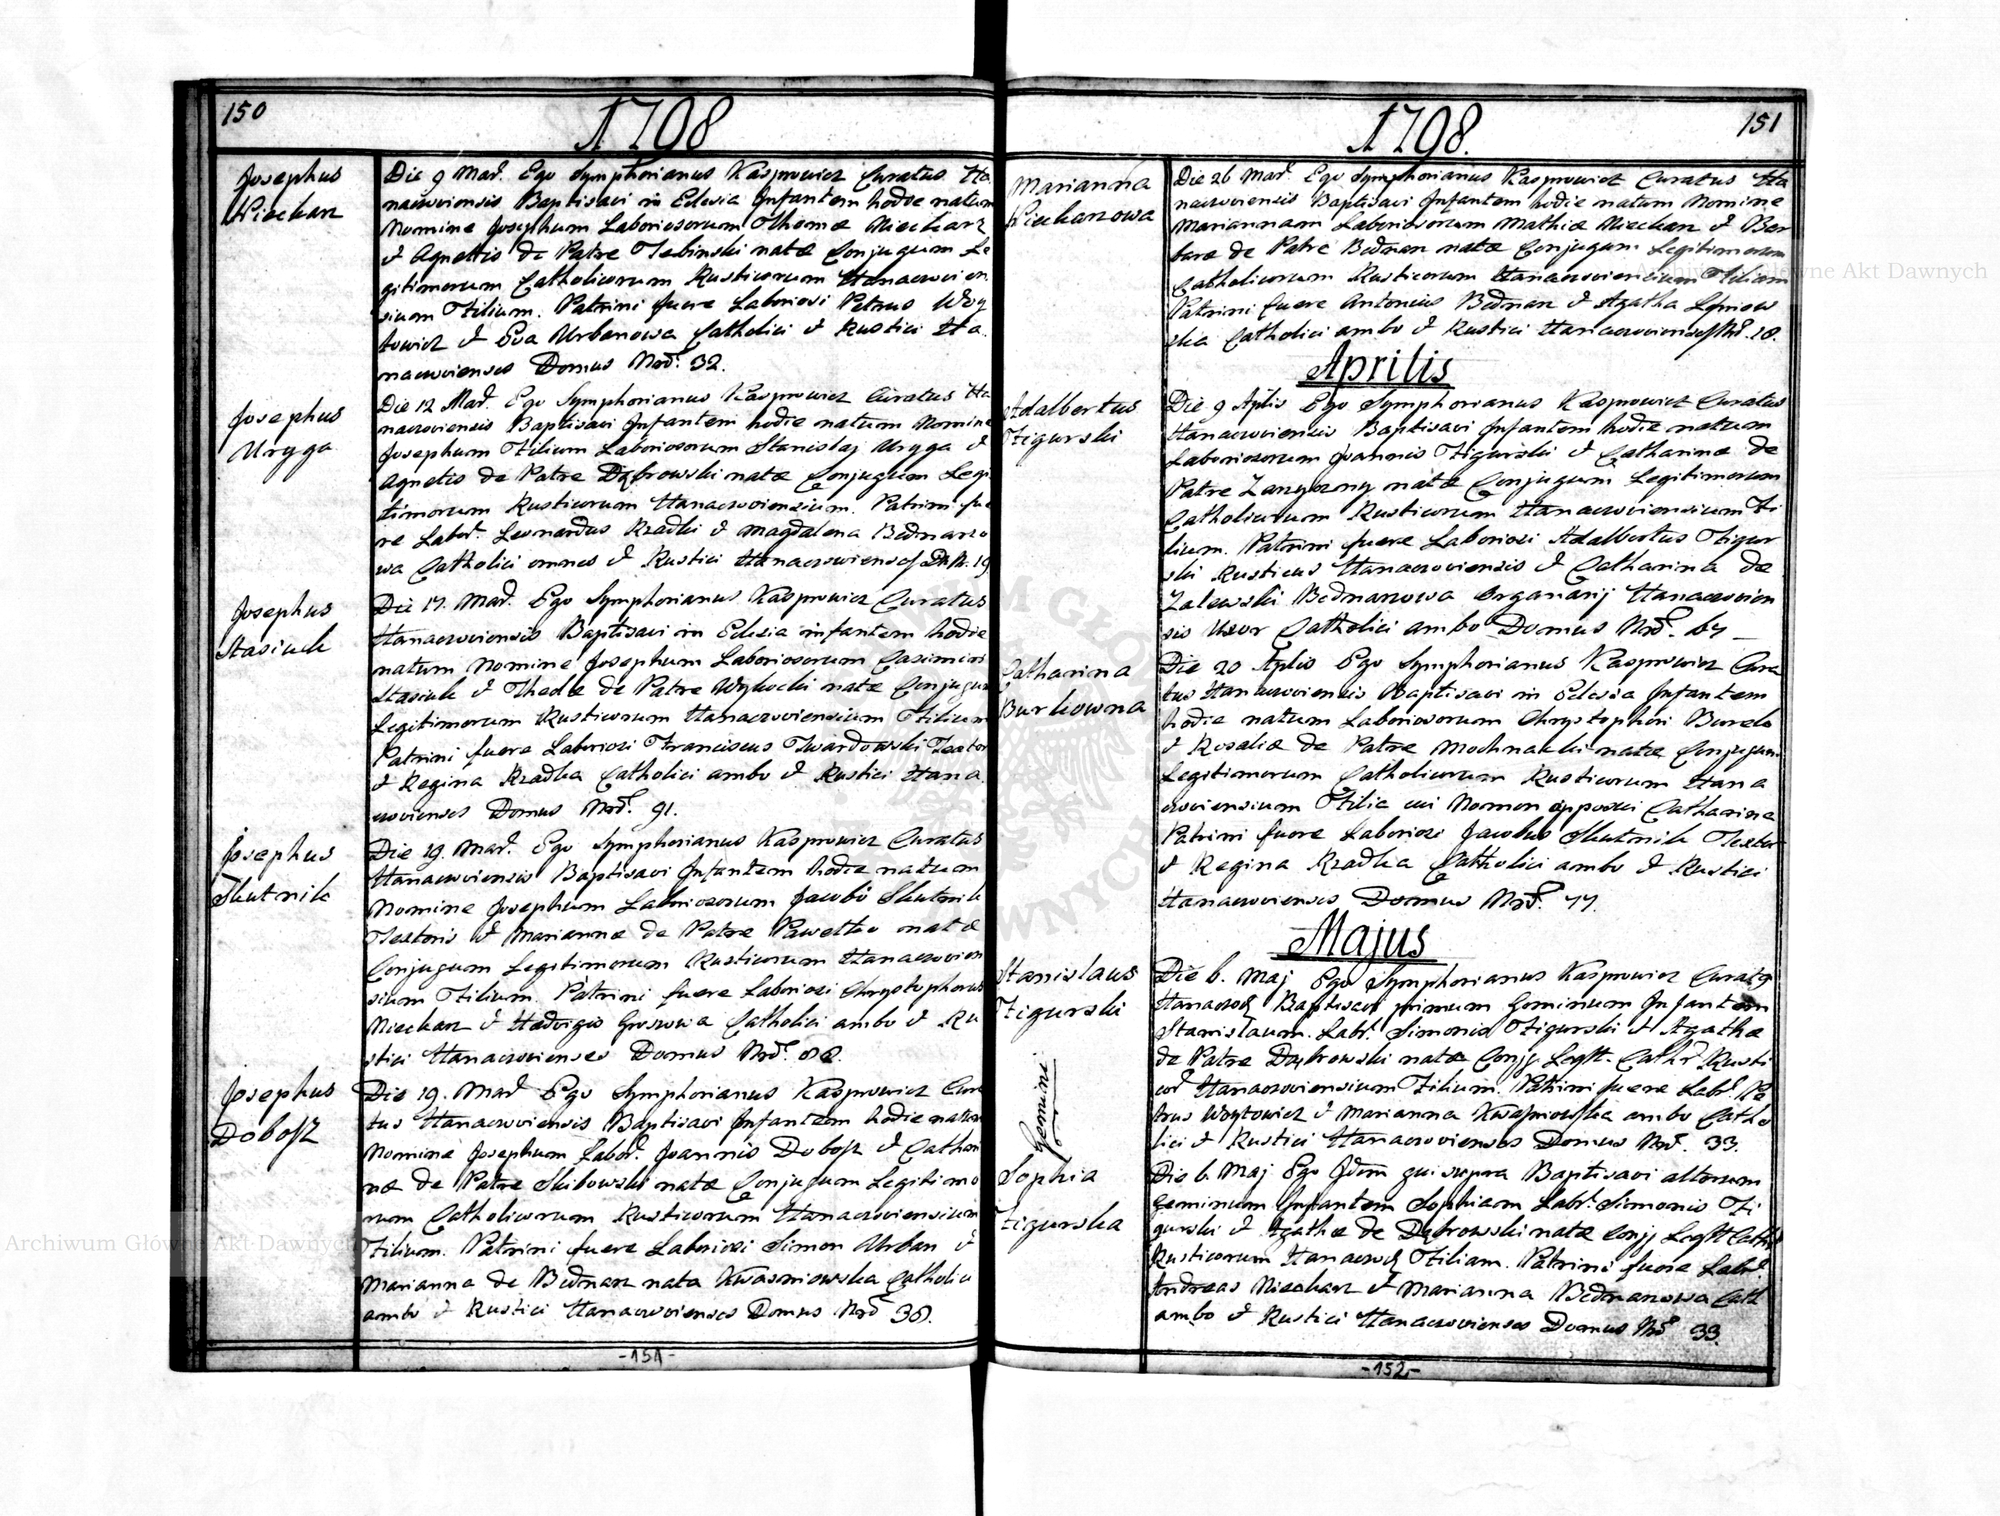 150
1798
Josephus
Niechaz
Die 9 Mar. Ego Symphorianus Kasprowicz Curatus Ha
naczoviensis Baptisavi in Eclesia Infantem hodie natum
Nomine Josephum Laboriosorum Thomæ Niecharz
& Agnetis de Patre Trebinski natæ Conjugum Le
gitimorum Catholicorum Rusticorum Hanaczovien
sium Filium. Patrini fuere Laboriosi Petrus Woy
towicz & Eva Urbanowa Catholici & Rustici Ha
naczovienses Domus Nro. 32.
Josephus
Uryga
Die 12 Mar. Ego Symphorianus Kasprowicz Curatus Ha
naczoviensis Baptisavi Infantem hodie natum Nomine
Josephum Filium Laboriosorum Stanislaj Uryga &
Agnetis de Patre Dąbrowski natæ Conjugum Legi
timorum Rusticorum Hanaczoviensium. Patrini fue
re Labor. Leonardus Rzadki & Magdalena Bednarzo
wa Catholici omnes & Rustici Hanaczovienses D. N. 19
Josephus
Stasiuk
Die 17. Mar. Ego Symphorianus Kasprowicz Curatus
Hanaczoviensis Baptisavi in Eclesia infantem hodie
natum Nomine Josephum Laboriosorum Casimiri
Stasiuk & Theclæ de Patre Wysocki natæ Conjugum
Legitimorum Rusticorum Hanaczoviensium Filium
Patrini fuere Laboriosi Franciscus Twardowski Textor
& Regina Rzadka Catholici ambo & Rustici Hana
czovienses Domus Nro. 91.
Josephus
Skutnik
Die 19. Mar. Ego Symphorianus Kasprowicz Curatus
Hanaczoviensis Baptisavi Infantem hodie natum
Nomine Josephum Laboriosorum Jacobi Skutnik
Textoris & Mariannæ de Patre Pawełko natæ
Conjugum Legitimorum Rusticorum Hanaczovien
sium Filium. Patrini fuere Laboriosi Chrystophorus
Niechaz & Hedvigis Grossowa Catholici ambo & Ru
stici Hanaczovienses Domus Nro. 88.
Josephus
Dobosz
Die 19. Mar. Ego Symphorianus Kasprowicz Cura
tus Hanaczoviensis Baptisavi Infantem hodie natum
Nomine Josephum Labor. Joannis Dobosz & Cathari
næ de Patre Skibowski natæ Conjugum Legitimo
rum Catholicorum Rusticorum Hanaczoviensium
Filium. Patrini fuere Laboriosi Simon Urban &
Marianna de Bednarz nata Kwasniowska Catholici
ambo & Rustici Hanaczovienses Domus Nro 38.
-151-
1798.
151
Marianna
Niechazowa
Die 26 Mar. Ego Symphorianus Kasprowicz Curatus Ha
naczoviensis Baptisavi Infantem hodie natum Nomine
Mariannam Laboriosorum Mathiæ Niechaz & Bar
baræ de Patre Bednarz natæ Conjugum Legitimorum
Catholicorum Rusticorum Hanaczoviensium Filiam
Patrini fuere Antonius Bednarz & Agatha
ska Catholici ambo & Rustici Hanaczovienses Nro. 18.
Aprilis
Adalbertus
Figurski
Die 9 Aplis Ego Symphorianus Kasprowicz Curatus
Hanaczoviensis Baptisavi Infantem hodie natum
Laboriosorum Joannis Figurski & Catharinæ de
Patre natæ Conjugum Legitimorum
Catholicorum Rusticorum Hanaczoviensium Fi
lium. Patrini fuere Laboriosi Adalbertus Figur
ski Rusticus Hanaczoviensis & Catharina de
Zalewski Bednarzowa Organarij Hanaczovien
sis Uxor Catholici ambo Domus Nro. 67 —
Catharina
Burkowna
Die 20 Aplis Ego Symphorianus Kasprowicz Cura
tus Hanaczoviensis Baptisavi in Eclesia Infantem
hodie natum Laboriosorum Chrystophori Burek
& Rosaliæ de Patre Mochnacki natæ Conjugum
Legitimorum Catholicorum Rusticorum Hana
czoviensium Filia cui Nomen apposui Catharina
Patrini fuere Laboriosi Jacobus Skutnik Textor
& Regina Rzadka Catholici ambo & Rustici
Hanaczovienses Domus Nro. 77.
Majus
Stanislaus
Figurski
Die 6. Maj Ego Symphorianus Kasprowicz Curatq
Hanaczov Baptisavi primum Geminum Infantem
Stanislaum. Labr. Simonis Figurski & Agathæ
de Patre Dąbrowski natæ Conjg Legtt. Cath Rusti
cor Hanaczoviensium Filium. Patrini fuere Labr. Pe
trus Woytowicz & Marianna Kwasniowska ambo Catho
lici & Rustici Hanaczovienses Domus Nro. 33.
Gemini
Sophia
Figurska
Die 6 Maj Ego Idem qui supra Baptisavi alterum
geminum Infantem Sophiam Labr. Simonis Fi
gurski & Agathæ de Dąbrowski natæ Conjg Legtt Cath
Rusticorum Hanaczov Filiam. Patrini fuere Labr.
Andreas Niechaz & Marianna Bednarzowa Cath
ambo & Rustici Hanaczovienses Domus Nro 33.
-152-
Archiwum Główne Akt Dawnych
Archiwum Główne Akt Dawnych